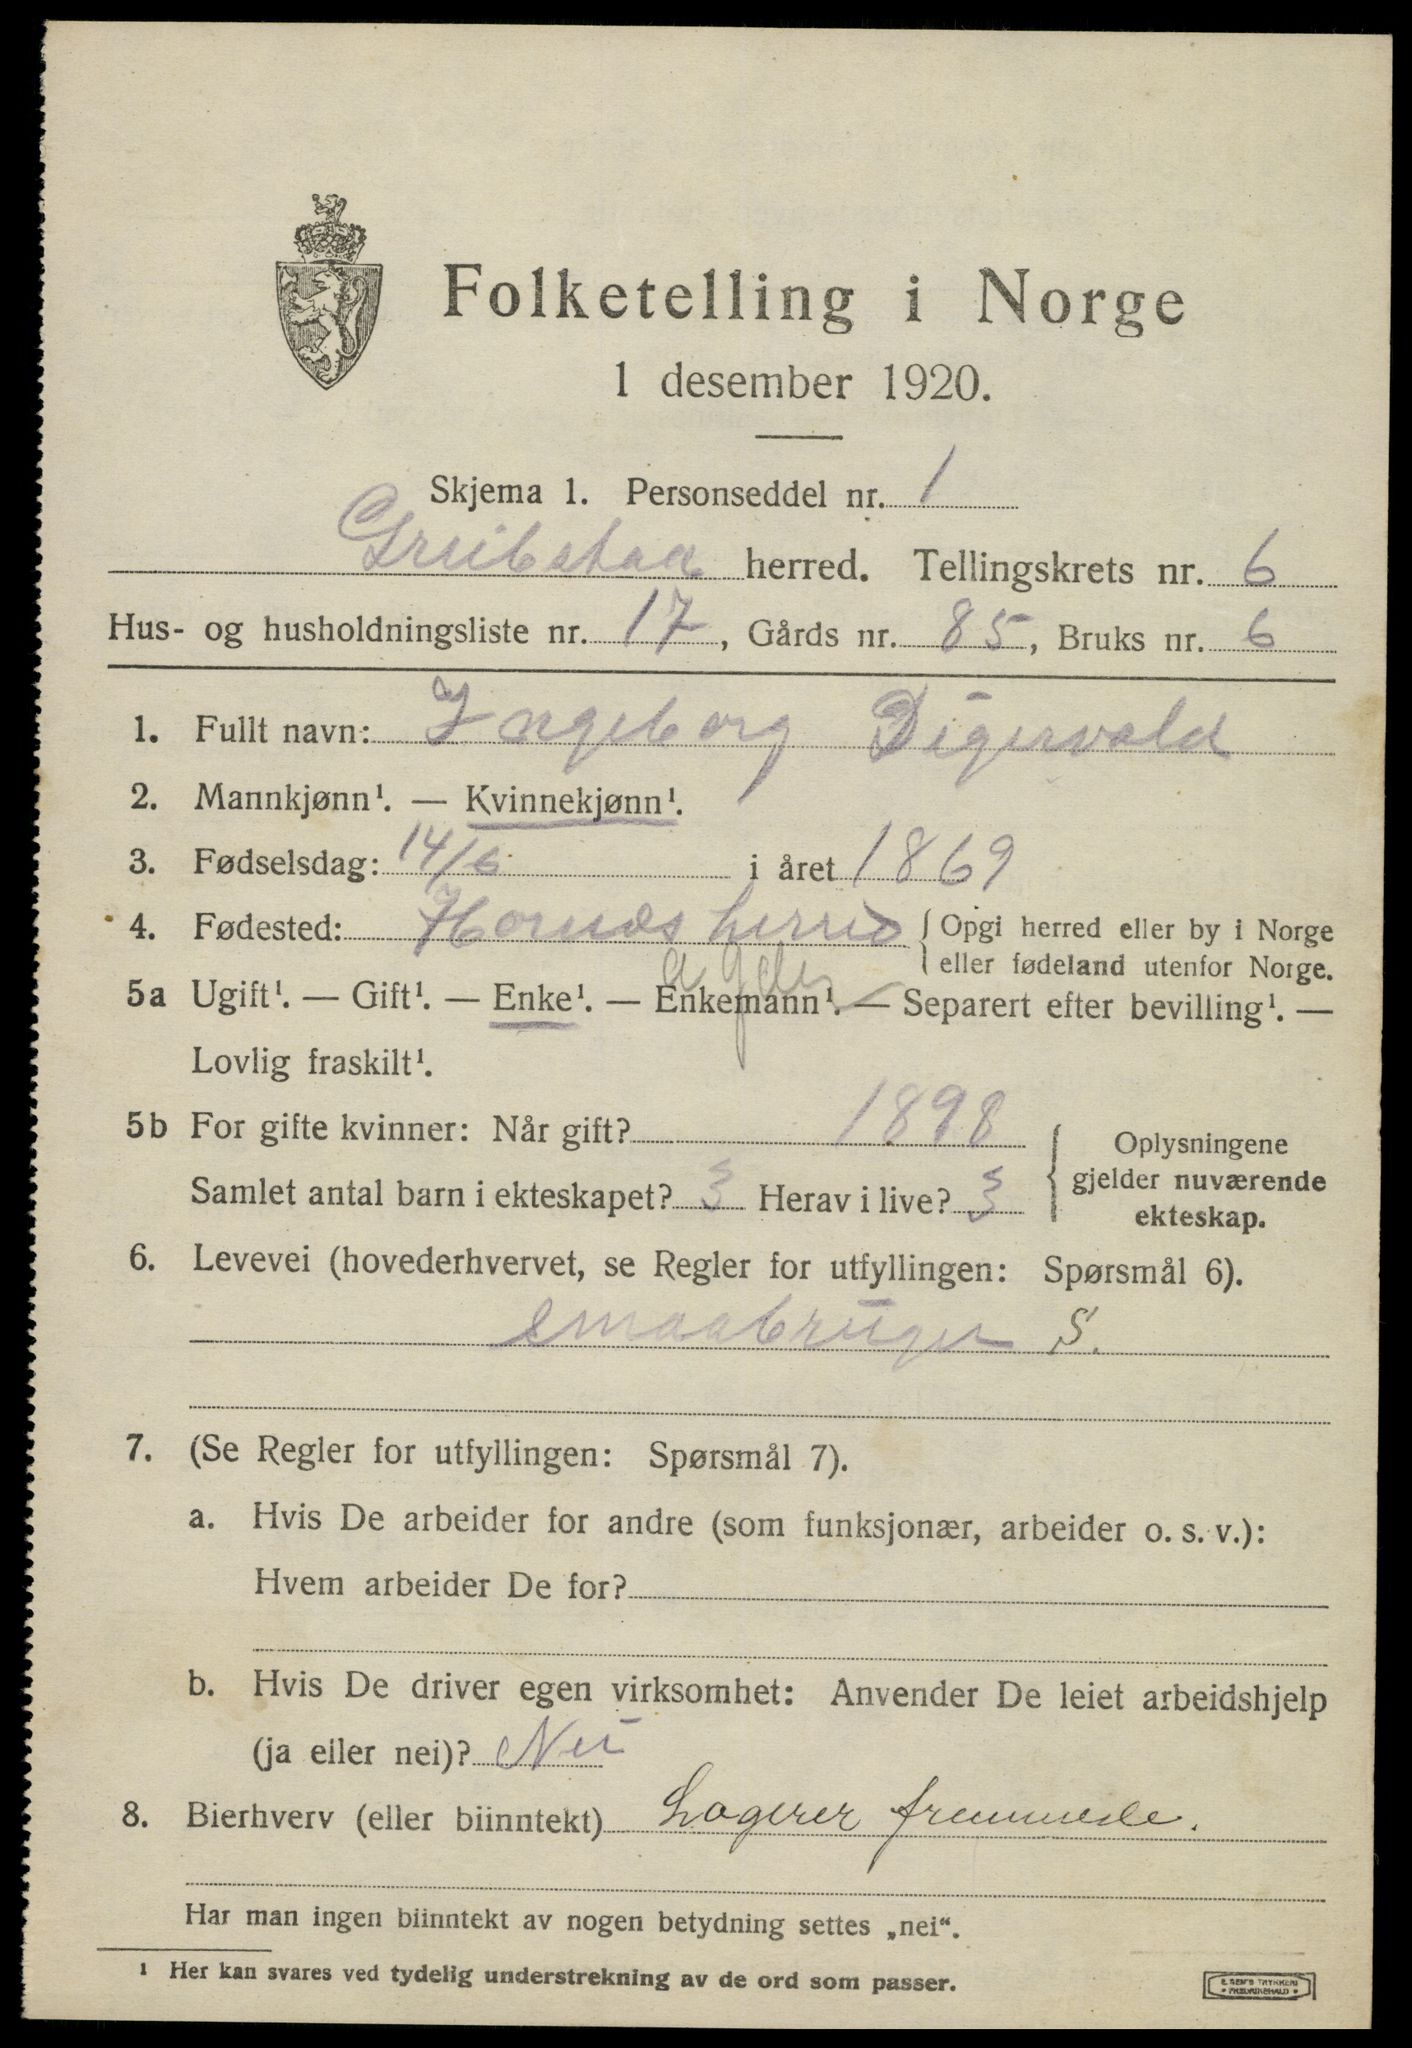 Folketelling i Norge
1 desember 1920.
Skjema 1. Personseddel nr. 1
Greibstad herred. Tellingskrets nr. 6
Hus- og husholdningsliste nr. 17, Gårds nr. 85, Bruks nr. 6
1. Fullt navn: Ingeborg Digervold
2. Mannkjønn¹. — Kvinnekjønn¹.
3. Fødselsdag: 14/6 i året 1869
4. Fødested: Hornæs herred { Opgi herred eller by i Norge
eller fødeland utenfor Norge.
agder
5a Ugift¹. — Gift¹. — Enke¹. — Enkemann¹. — Separert efter bevilling¹. —
Lovlig fraskilt¹.
5b For gifte kvinner: Når gift? 1898
Samlet antal barn i ekteskapet? 3 Herav i live? 3
{ Oplysningene
gjelder nuværende
ekteskap.
6. Levevei (hovederhvervet, se Regler for utfyllingen: Spørsmål 6).
smaabruger S.
7. (Se Regler for utfyllingen: Spørsmål 7).
a. Hvis De arbeider for andre (som funksjonær, arbeider o. s. v.):
Hvem arbeider De for?
b. Hvis De driver egen virksomhet: Anvender De leiet arbeidshjelp
(ja eller nei)? Nei
8. Bierhverv (eller biinntekt) Logerer fremmede.
Har man ingen biinntekt av nogen betydning settes „nei“.
¹ Her kan svares ved tydelig understrekning av de ord som passer.
E. SEM'S TRYKKERI
• FREDRIKSHALD •